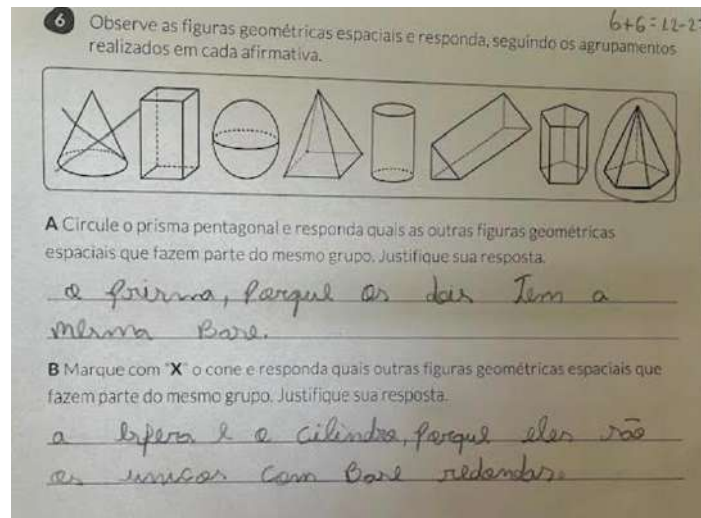 6 Observe as figuras geométricas espaciais e responda, seguindo os agrupamentos
realizados em cada afirmativa.
6+6=12-2
A Circule o prisma pentagonal e responda quais as outras figuras geométricas
espaciais que fazem parte do mesmo grupo. Justifique sua resposta.
o prisma, Porque os dois Tem a
mesma Base.
B Marque com "X" o cone e responda quais outras figuras geométricas espaciais que
fazem parte do mesmo grupo. Justifique sua resposta.
a esfera e o cilindro, porque eles são
os unicos com Base redondas.